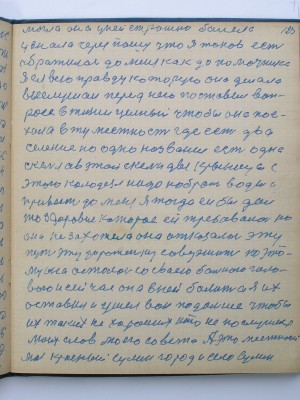 могла она у ней страшно болела
узнала через кому что я таков есть
обратилась до мне как до помощника
Я ей всю правду которую она делала
выслушал перед нею поставил воп-
рос в жизни ценный чтобы она пое-
хала в ту местность где есть два
селения но одно название есть одна
скеля в этой скели два криницы с
этого колодезя надо набрать воды и
привезти до меня Я тогда ей бы дал
то здоровье которое ей требовалось но
она не захотела она отказалась эту
путь эту дорожку совершить поэто-
му она осталась со своею больною голо-
вою и сейчас она в ней болит а я их
оставил и ушел вон подальше чтобы
их таких не хороших кто не послушал
моих слов моего совета А это местность
мой Сумы город и село Сумы